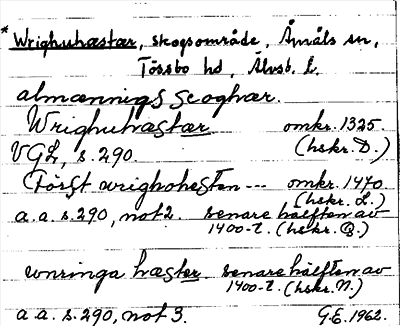 * Wrighuhæstær, skogsområde, Åmåls sn,
Tössbo hd, Älvsb. l.
almænnigs scoghær.
Wrighuhæstær omkr. 1325.
VGL, s. 290. (hskr. D.)
(Törst wrighohesten --- omkr. 1470.
(hskr. L.)
a.a. s. 290, not 2. senare hälften av
1400-t. (hskr. B.)
wnringa hæster senare hälften av
1400-t. (hskr. N.)
a.a. s. 290, not 3. G.E. 1962.